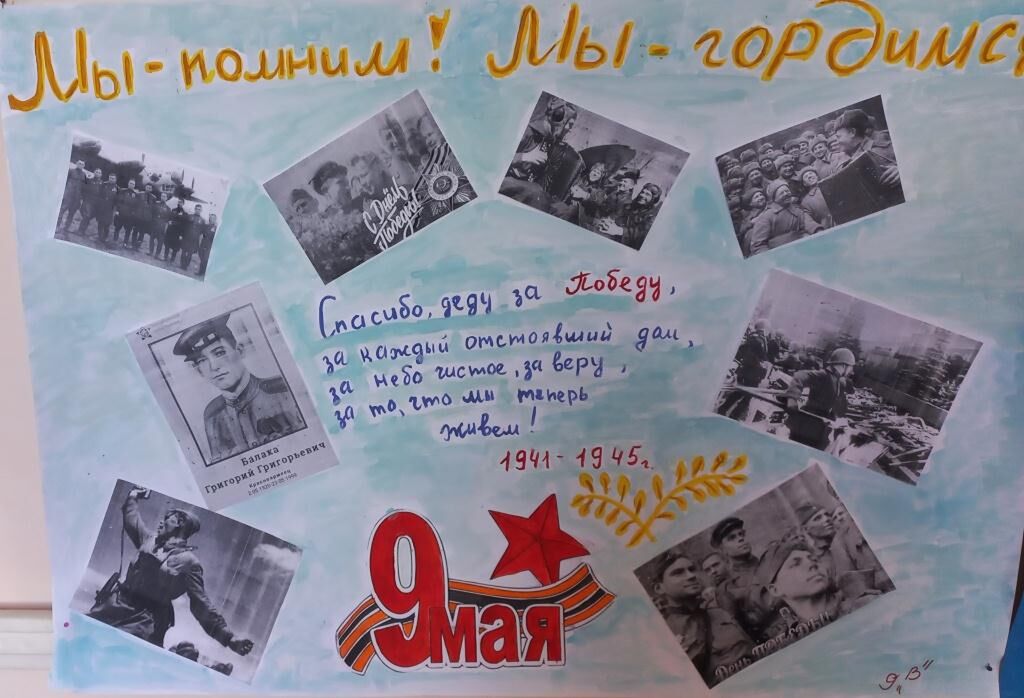 Мы - помним! Мы - гордимся
С Днём
Победы!
Спасибо, деду за Победу,
за каждый отстоявший дом,
за небо чистое, за веру,
за то, что мы теперь
живем!
1941 - 1945г.
Балака
Григорий Григорьевич
Красноармеец
9 мая
День Победы
9 "В"